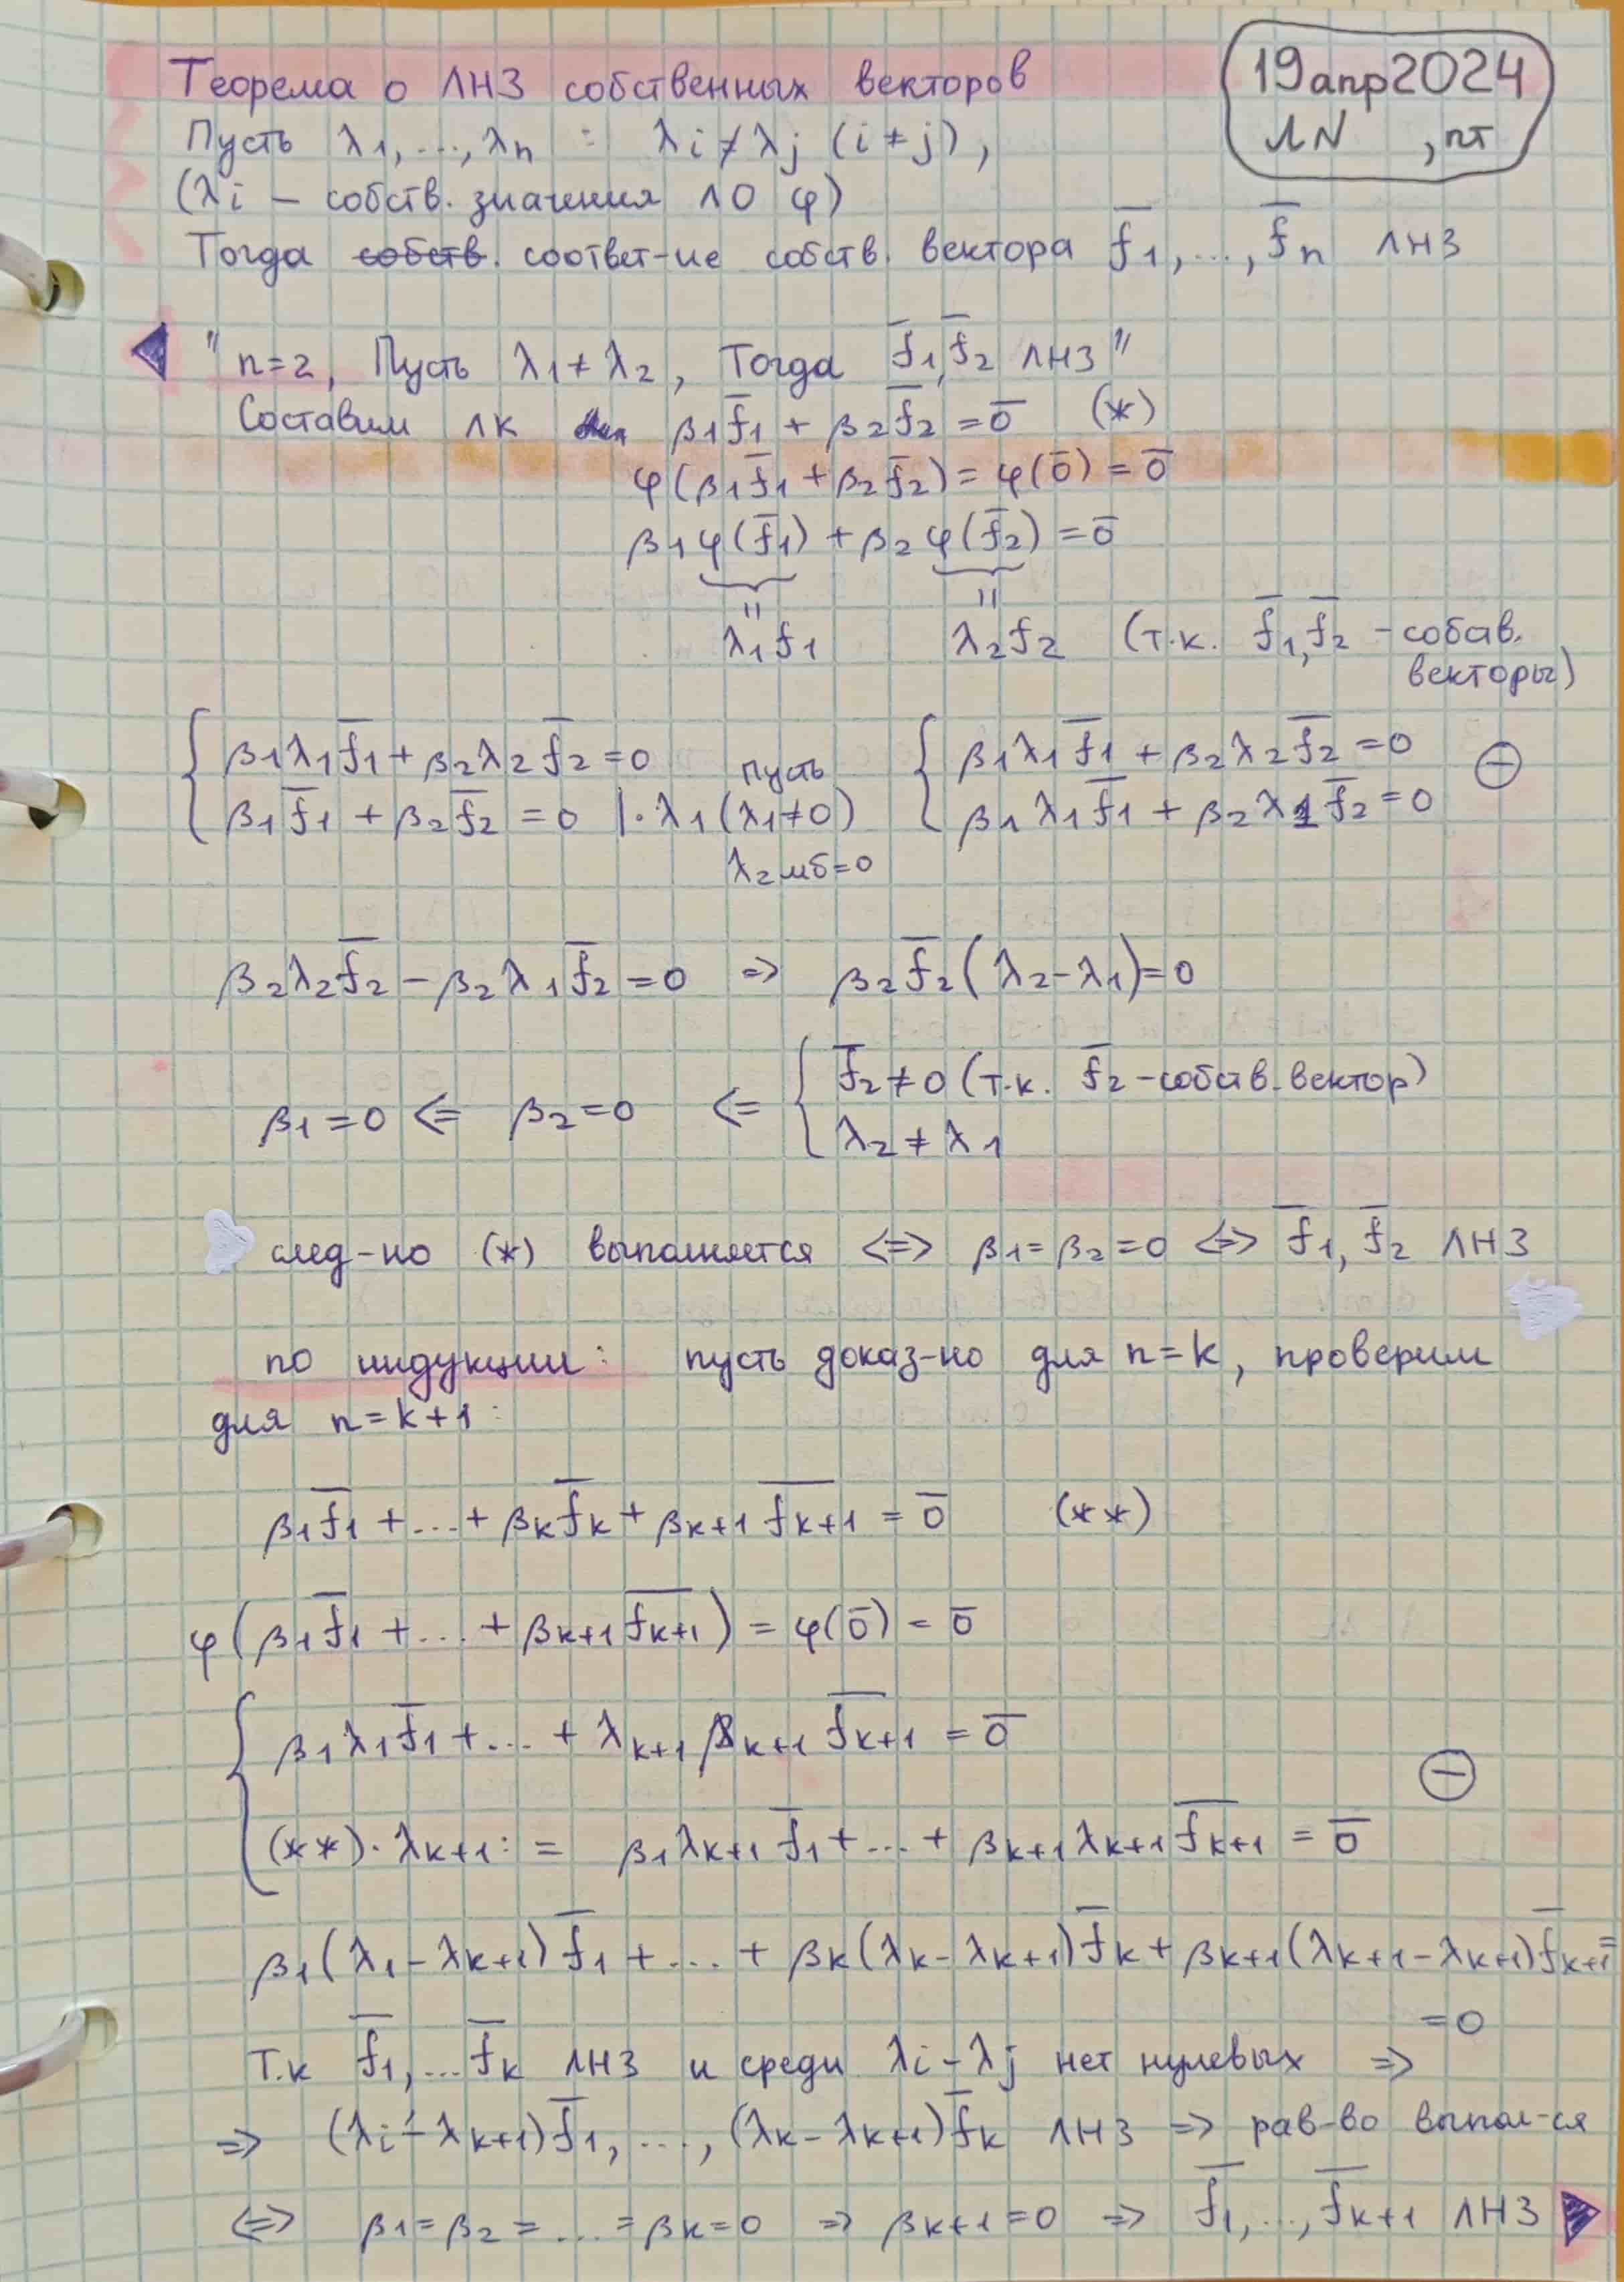 Теорема о ЛНЗ собственных векторов
19 апр 2024
ЛN , пт
Пусть λ₁, ..., λₙ : λi ≠ λj (i ≠ j),
(λi – собств. значения ЛО φ)
Тогда собств. соответ-ие собств. вектора f̅₁, ..., f̅ₙ ЛНЗ
"n=2, Пусть λ₁ ≠ λ₂, Тогда f̅₁, f̅₂ ЛНЗ"
Составим ЛК β₁f̅₁ + β₂f̅₂ = 0̅ (*)
φ(β₁f̅₁ + β₂f̅₂) = φ(0̅) = 0̅
β₁φ(f̅₁) + β₂φ(f̅₂) = 0̅
= =
λ₁f₁ λ₂f₂ (т.к. f̅₁, f̅₂ – собств. векторы)
{ β₁λ₁f̅₁ + β₂λ₂f̅₂ = 0
β₁f̅₁ + β₂f̅₂ = 0 | · λ₁ (пусть λ₁ ≠ 0)
λ₂ мб = 0
{ β₁λ₁f̅₁ + β₂λ₂f̅₂ = 0
β₁λ₁f̅₁ + β₂λ₁f̅₂ = 0 ⊖
β₂λ₂f̅₂ – β₂λ₁f̅₂ = 0 ⇒ β₂f̅₂(λ₂ – λ₁) = 0
β₁ = 0 ⇐ β₂ = 0 ⇐ { f̅₂ ≠ 0 (т.к. f̅₂ – собств. вектор)
λ₂ ≠ λ₁
след-но (*) выполняется ⇔ β₁ = β₂ = 0 ⇔ f̅₁, f̅₂ ЛНЗ
по индукции: пусть доказ-но для n = k, проверим
для n = k+1:
β₁f̅₁ + ... + βₖf̅ₖ + βₖ₊₁f̅ₖ₊₁ = 0̅ (**)
φ(β₁f̅₁ + ... + βₖ₊₁f̅ₖ₊₁) = φ(0̅) = 0̅
{ β₁λ₁f̅₁ + ... + λₖ₊₁βₖ₊₁f̅ₖ₊₁ = 0̅
⊖
(**) · λₖ₊₁ := β₁λₖ₊₁f̅₁ + ... + βₖ₊₁λₖ₊₁f̅ₖ₊₁ = 0̅
β₁(λ₁ – λₖ₊₁)f̅₁ + ... + βₖ(λₖ – λₖ₊₁)f̅ₖ + βₖ₊₁(λₖ₊₁ – λₖ₊₁)f̅ₖ₊₁ =
= 0
Т.к f̅₁, ... f̅ₖ ЛНЗ и среди λi – λj нет нулевых ⇒
⇒ (λi – λₖ₊₁)f̅₁, ..., (λₖ – λₖ₊₁)f̅ₖ ЛНЗ ⇒ рав-во выпол-ся
⇔ β₁ = β₂ = ... = βₖ = 0 ⇒ βₖ₊₁ = 0 ⇒ f̅₁, ..., f̅ₖ₊₁ ЛНЗ